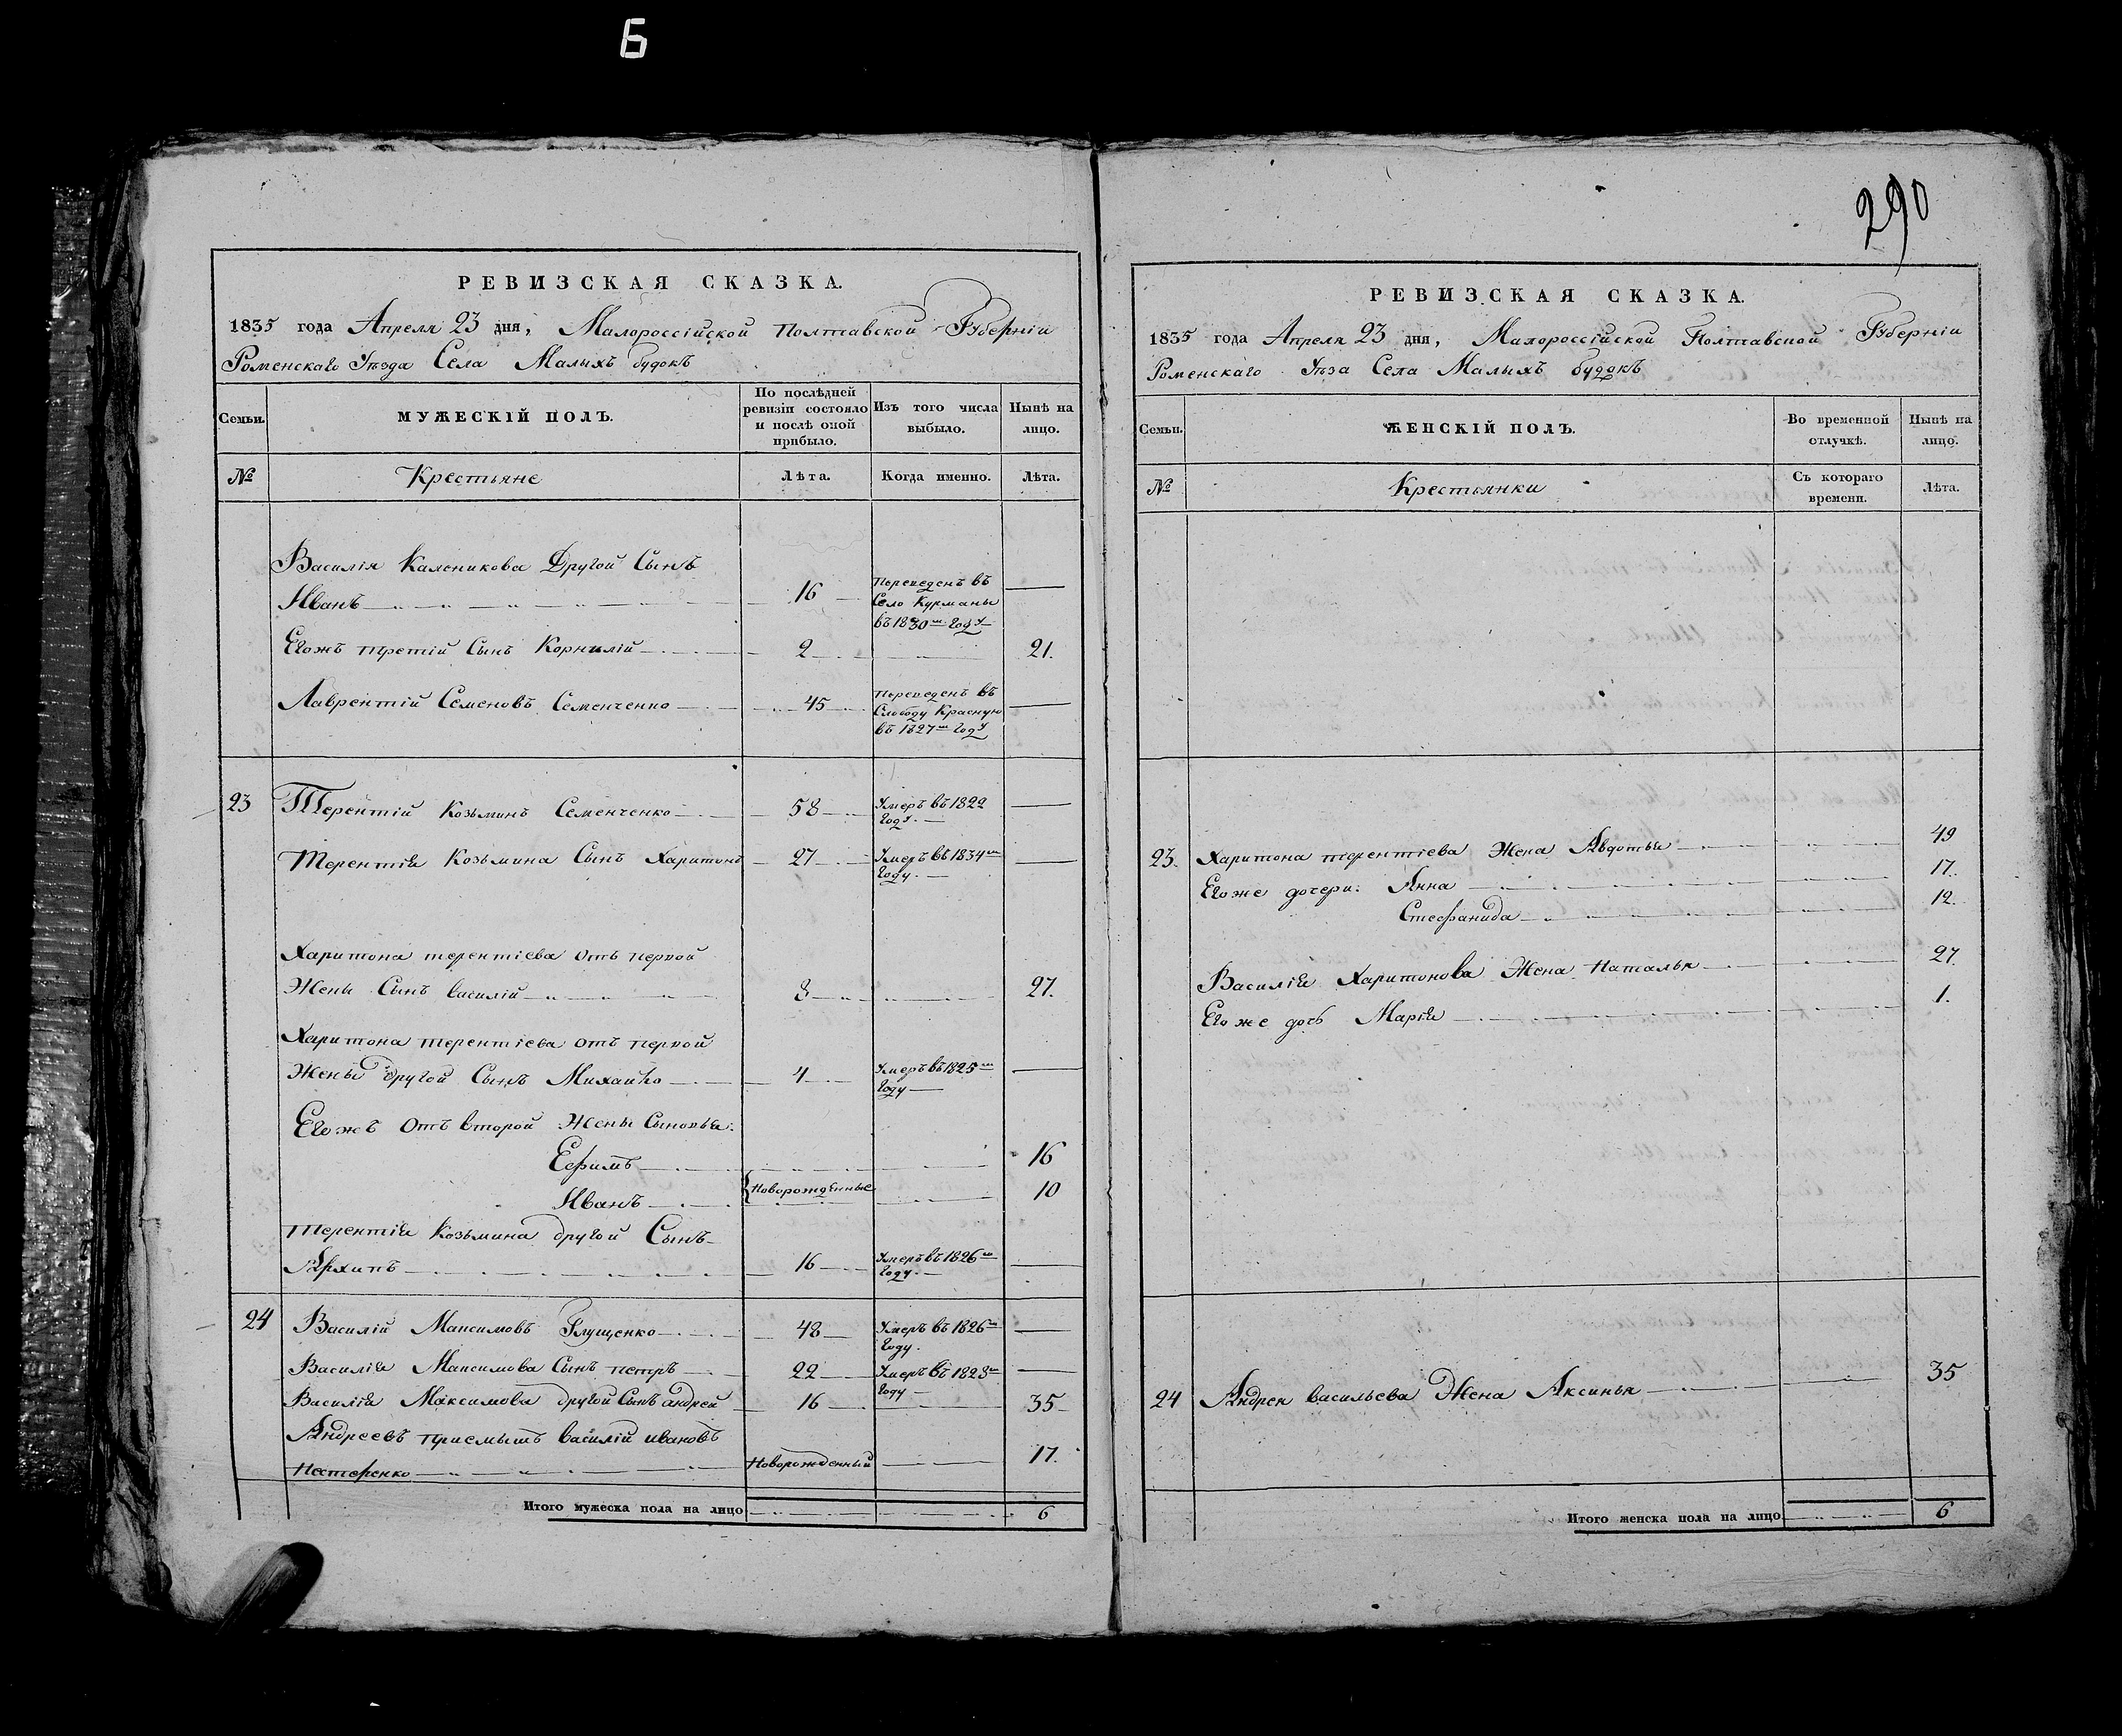 Б
290
РЕВИЗСКАЯ СКАЗКА.
1835 года Апреля 23 дня, Малороссійской Полтавской Губерніи
Роменскаго Уѣзда Села Малыхъ будокъ
Семьи. МУЖЕСКІЙ ПОЛЪ. По послѣдней ревизіи состояло и послѣ оной прибыло. Изъ того числа выбыло. Нынѣ на лицо.
№ Крестьяне Лѣта. Когда именно. Лѣта.
Василія Каленикова Другой Сынъ
Иванъ 16 Переведенъ въ Село Курманы въ 1830м году
Егожъ третій Сынъ Корнилій 2 21.
Лаврентій Семеновъ Семенченко 45 Переведенъ въ Слободу Красную въ 1827м году
23 Терентій Козьминъ Семенченко 58 Умеръ въ 1822 году.
Терентія Козьмина Сынъ Харитонъ 27 Умеръ въ 1834м году.
Харитона терентіева отъ первой
Жены Сынъ василій 8 27.
Харитона терентіева отъ первой
Жены другой Сынъ Михайло 4 Умеръ въ 1825м году
Егожъ отъ второй Жены Сыновья:
Ефимъ 16
Иванъ Новорожденные 10
Терентія Козьмина другой Сынъ
Архипъ 16 Умеръ въ 1826м году.
24 Василій Максимовъ Глущенко 48 Умеръ въ 1826м году.
Василія Максимова Сынъ петръ 22 Умеръ въ 1828м году
Василія Максимова другой Сынъ андрей 16 35
Андреевъ приемышъ василій ивановъ
Нестеренко Новорожденный 17.
Итого мужеска пола на лицо 6
РЕВИЗСКАЯ СКАЗКА.
1835 года Апреля 23 дня, Малороссійской Полтавской Губерніи
Роменскаго Уѣза Села Малыхъ будокъ
Семьи. ЖЕНСКІЙ ПОЛЪ. Во временной отлучкѣ. Нынѣ на лицо.
№ Крестьянки Съ котораго времени. Лѣта.
23. Харитона терентіева Жена Авдотья 49
Егоже дочери: Анна 17.
Стефанида 12.
Василія Харитонова Жена Наталья 27.
Егоже дочь Марія 1.
24 Андрея васильева Жена Аксинья 35
Итого женска пола на лицо 6